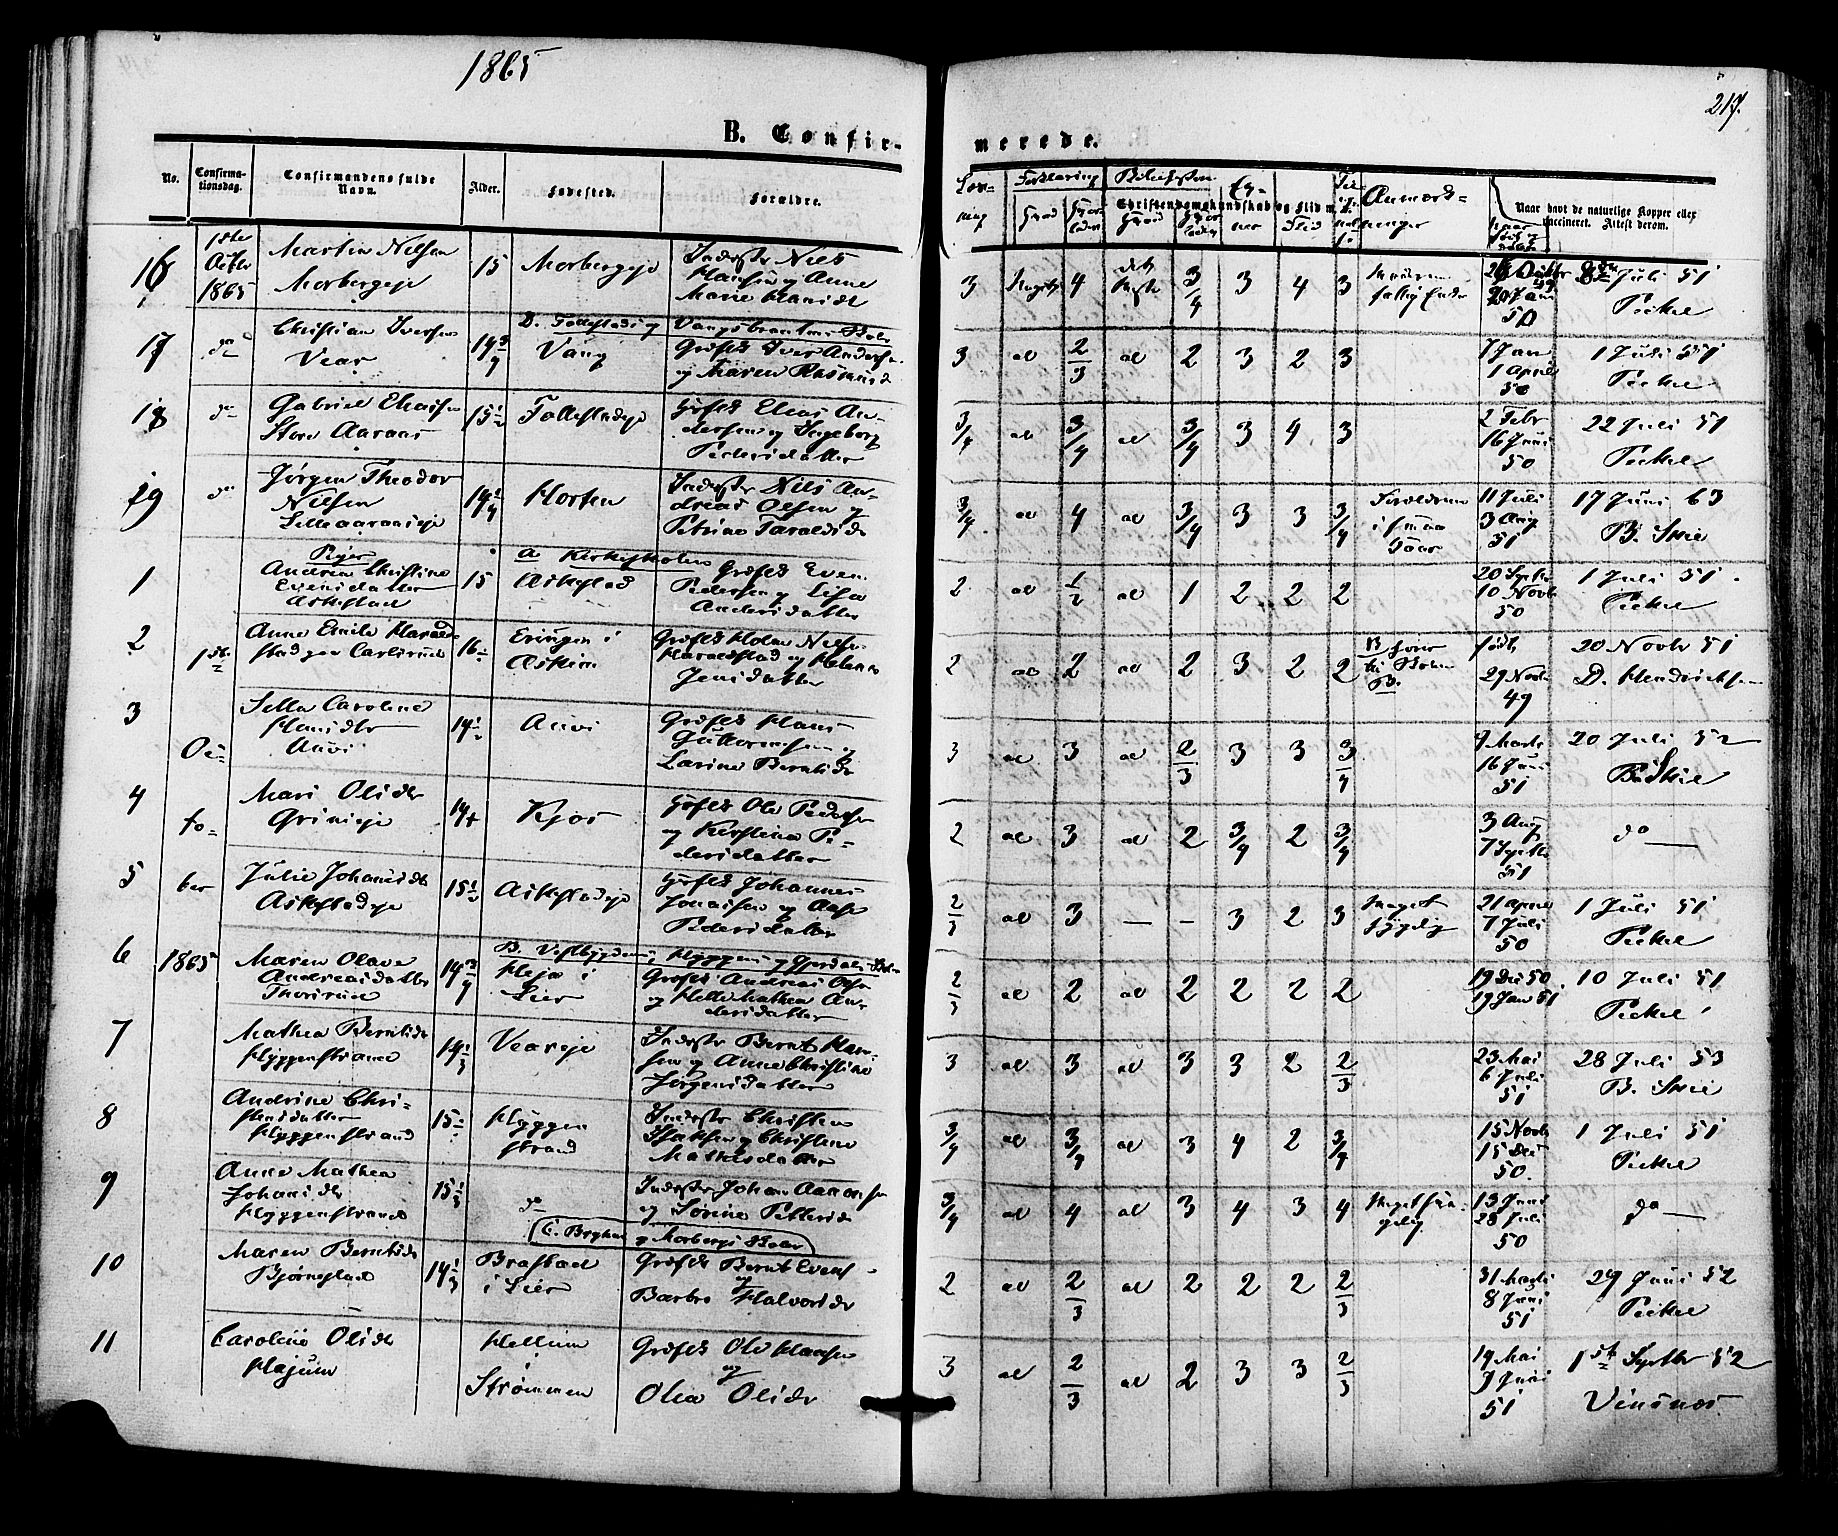 1865
217.
B. Confir-
merede.
No.
Confirma-
tionsdag.
Confirmandens fulde
Navn.
Alder.
Fødested.
Forældre.
Læs-
ning
Forklaring
Grad
Christendomskundskab og Flid m.
Flid
Anmærk-
ninger
Naar havt de naturlige Kopper eller
vaccineret. Attest derom.
16
1ste
Octbr
1865
Martin Nilsen
Morbergeje
15
Morbergeje
Inderste Niels
Hansen og Anne
Marie Hansdt
3
4
3/4
3
4
3
8de Juli 51
Peckel
17
do
Christian Iversen
Vear
14 3/4
D. Follestads og Vangsbrantmes Skole
Vang
Grdfks Iver Andersen
og Maren Rasmusd
3
al
2/3
al
2
3
2
3
7 Jan
1 April
50
1 Juli 51
Peckel
18
do
Gabriel Eliasen
Store Aaraas
15 1/2
Follestadeje
Hsfks Elias An-
dersen og Ingeborg
Pedersdatter
3/4
al
3/4
al
3/4
3
4
3
2 Febr
16 Juni
50
22 Juli 51
Peckel
19
do
Jørgen Theodor
Nilsen
Lilleaaraaseje
14 1/4
Horten
Inderste Nils An-
dreas Olsen og
Petrine Taraldsd
3/4
al
4
al
3/4
3
3
3/4
Forældrene
i smaa
Kaar
11 Juli
3 Aug
51
17 Juni 63
B. Skie
Piger
A Kirkeskolen
1
Andrea Christine
Evensdatter
Askestad
15
Askestad
Grdfks Even
Pedersen og Lisa
Andersdatter
2
al
1/2
al
1
2
2
2
20 Septbr
10 Novbr
50
1 Juli 51
Peckel
2
1ste
Anne Emilie Harald-
stad paa Carlsrud
16
Eringen i
Askim
Grdfks Holm Nilsen
Haraldstad og Helene
Jensdatter
2
al
2
al
2
3
2
2
B.
født
29 Novbr
49
20 Novbr 51
D. Hendrichsen
3
Oc-
Sella Caroline
Hansdtr
Auvi
14 1/2
Auvi
Grdfks Hans
Guttormsen og
Larine Berntsdr
3
al
3
al
2/3
3
3
3/4
9 Marts
16 Juni
51
20 Juli 52
B Skie
4
to-
Mari Olsdtr
Grimseje
14
Kjos
Hsfks Ole Pedersen
og Kirstine Pe-
dersdatter
2
al
3
al
2
3/4
2
3/4
3 Aug
7 Septbr
51
do
5
ber
Julie Johansdtr
Askestadeje
15 1/2
Askestadeje
Hsfks Johannes
Jonassen og Aase
Pedersdatter
2/3
al
3
—
—
3
2
3
Meget
sygelig
21 April
7 Juli
50
1 Juli 51
Peckel
B. Vestbygdens, Hyggens og Gjerdals Skoler
6
1865
Maren Olave
Andreasdatter
Thorsrud
14 3/4
Heja i
Lier
Grdfks Andreas Olsen
og Helle Mathea An-
dersdatter
2/3
al
2
al
2
2
2
2
19 Dec 50
19 Jan 51
10 Juli 51
Peckel
7
Mathea Berntsdr
Hyggenstrand
14 1/3
Veareje
Inderste Bernt Han-
sen og Anne Christine
Jørgensdatter
3
al
3
al
3
3
2
2/3
23 Mai
6 Juli
51
28 Juli 53
B. Skie
8
Andrine Chri-
stensdatter
Hyggenstrand
15
Hyggen
strand
Inderste Christen
Isaksen og Christine
Mathisdatter
3/4
al
3/4
al
3
4
2
3/4
15 Novbr
15 Dec
50
1 Juli 51
Peckel
9
Anne Mathea
Johansdtr
Hyggenstrand
15 1/3
do
Inderste Johan Aanonsen
og Sørine Pettersd
3/4
al
4
al
3
4
3
4
13 Juni
28 Juli
50
do
C. Bryhns og Morbergs Skoler
10
Maren Berntsdtr
Bjørnstad
14 1/3
Brastad
i Lier
Grdfks Bernt Evens
og
Barbro Halvorsdr
2
al
2/3
al
2
2
2
2/3
31 Marts
8 Juni
51
29 Juni 52
Peckel
11
Caroline Olsdtr
Højum
Hellum
i
Strømmen
Grdfks Ole Hansen
og
Olea Olsdr
3
al
2/3
al
2
3
3
2/3
14 Mai
51
1ste Septbr 52
Vinsnæs